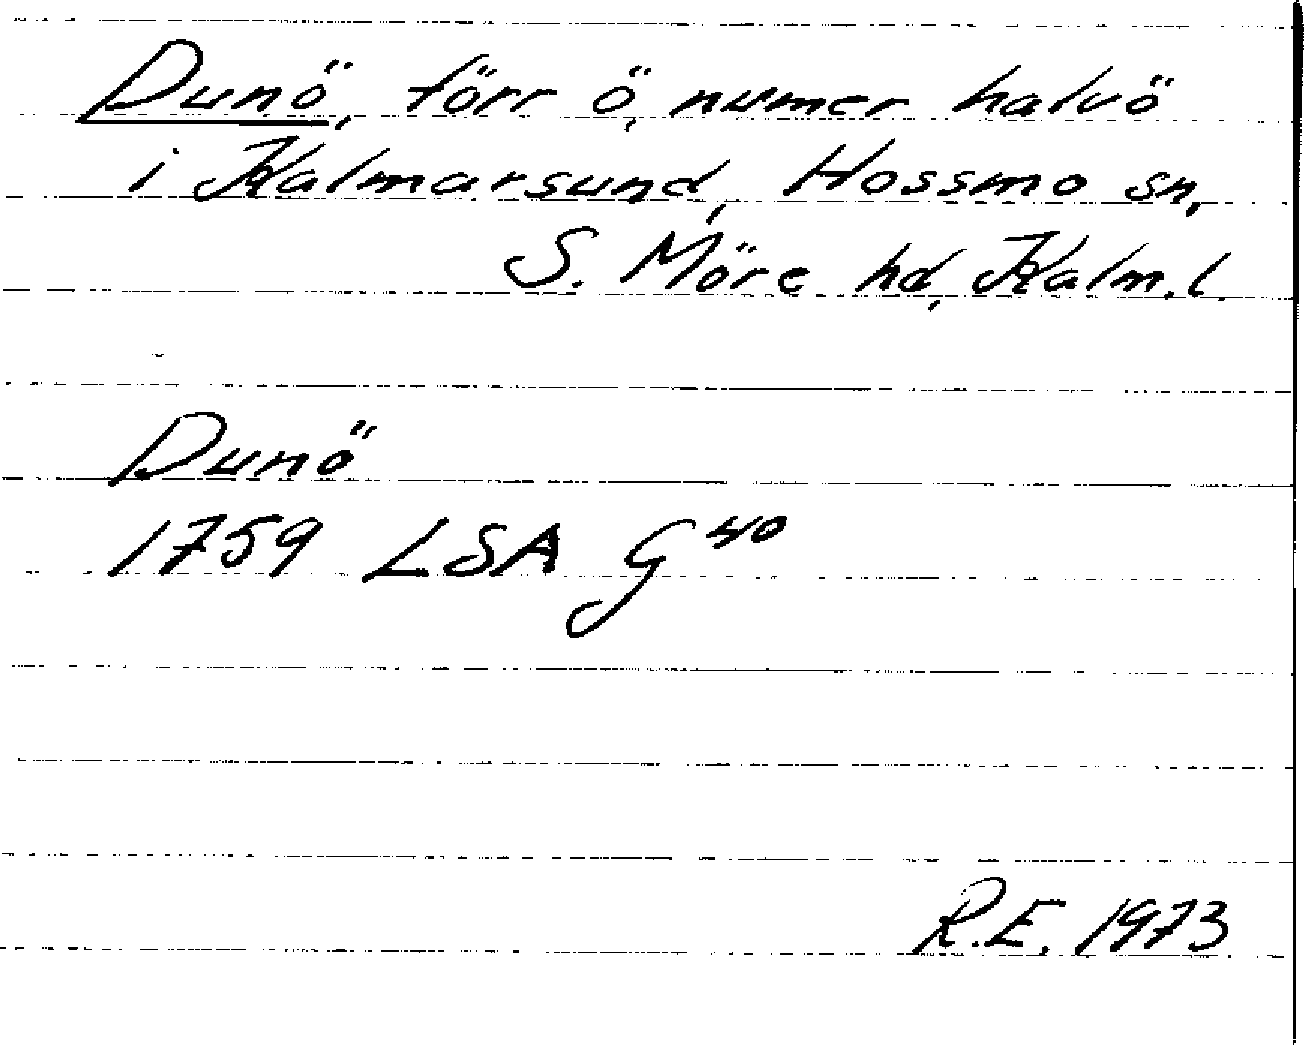 Dunö, förr ö, numer halvö
i Kalmarsund, Hossmo sn,
S. Möre hd, Kalm. l.
Dunö
1759 LSA G 40
R.E. 1973